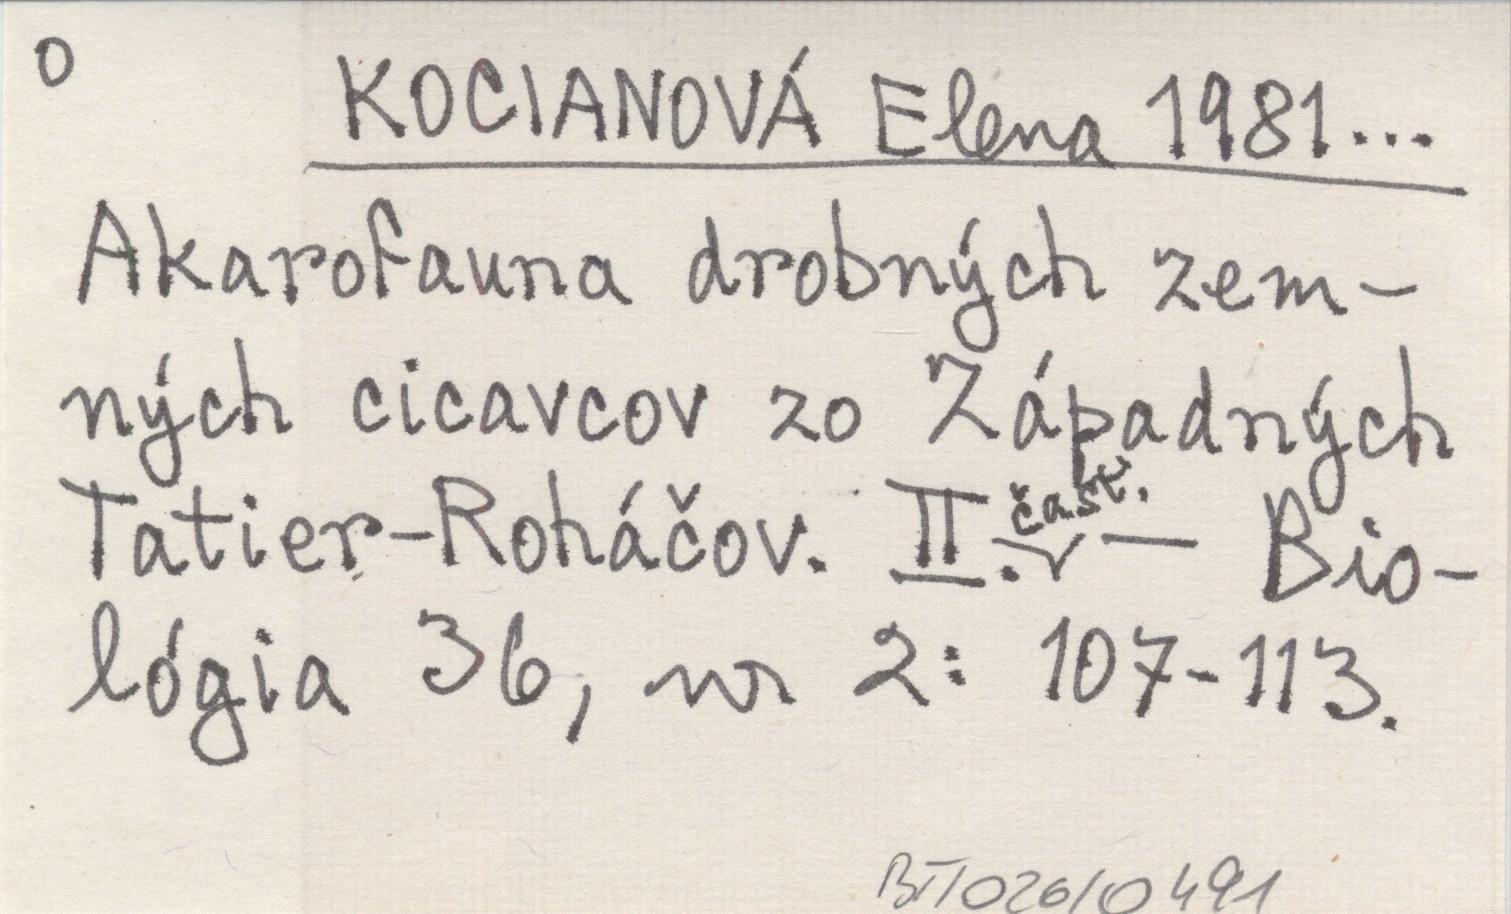 O
KOCIANOVÁ Elena 1981...
Akarofauna drobných zem-
ných cicavcov zo Západných
Tatier-Roháčov. II. časť. — Bio-
lógia 36, nr 2: 107-113.
BT/026/0491